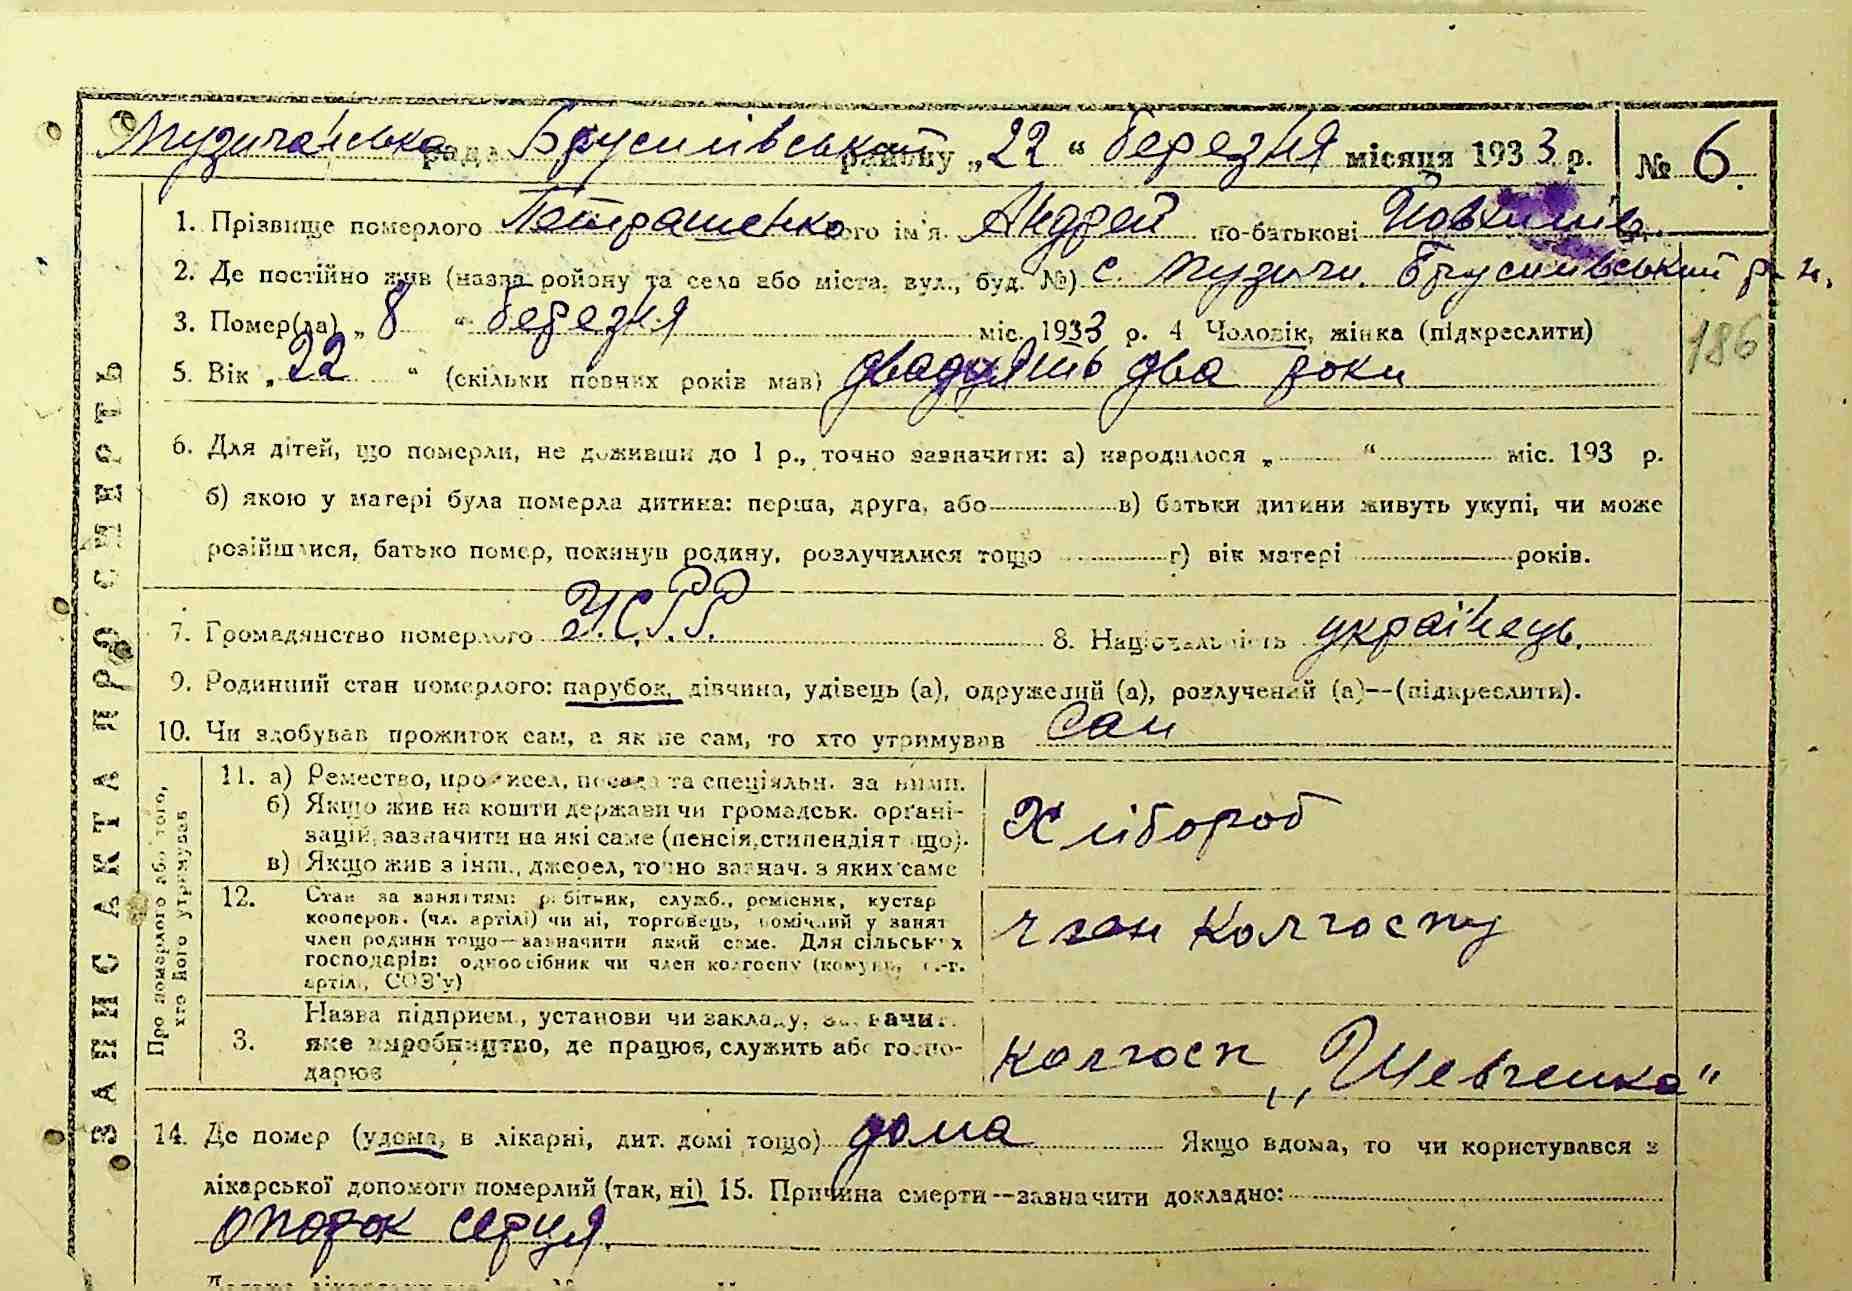 Музичанська рада Брусилівський району „22“ березня місяця 1933 р. № 6.
1. Прізвище померлого Петрашенко його ім'я Андрей по-батькові
2. Де постійно жив (назва ройону та села або міста, вул., буд. №) с. Музичи. Брусилівський р-н.
3. Помер(ла) „8“ березня міс. 1933 р. 4 Чоловік, жінка (підкреслити)
186
5. Вік „22“ (скільки повних років мав) двадцять два роки
6. Для дітей, що померли, не доживши до 1 р., точно зазначити: а) народилося „ “ міс. 193 р.
б) якою у матері була померла дитина: перша, друга, або в) батьки дитини живуть укупі, чи може
розійшлися, батько помер, покинув родину, розлучилися тощо г) вік матері років.
7. Громадянство померлого У.С.Р.Р. 8. Національність українець.
9. Родинний стан померлого: парубок, дівчина, удівець (а), одружений (а), розлучений (а)—(підкреслити).
10. Чи здобував прожиток сам, а як не сам, то хто утримував сам
ЗАПИС АКТА ПРО СМЕРТЬ
Про померлого або того,
хто його утримував
11. а) Ремество, промисел, посада та спеціяльн. за ними.
б) Якщо жив на кошти держави чи громадськ. органі-
зацій, зазначити на які саме (пенсія, стипендія тощо).
в) Якщо жив з інш., джерел, точно зазнач. з яких саме
Хлібороб
12. Стан за заняттям: робітник, служб., ремісник, кустар
кооперов. (чл. артілі) чи ні, торговець, помічний у занят
член родини тощо—зазначити який саме. Для сільських
господарів: одноосібник чи член колгоспу (комуни, с.-г.
артілі, СОЗ'у)
член колгоспу
3. Назва підприєм., установи чи закладу, зазначит.
яке виробництво, де працює, служить або госпо-
дарює
колгосп „Шевченка"
14. Де помер (удома, в лікарні, дит. домі тощо) дома Якщо вдома, то чи користувався з
лікарської допомоги померлий (так, ні) 15. Причина смерти—зазначити докладно:
опорок серця.